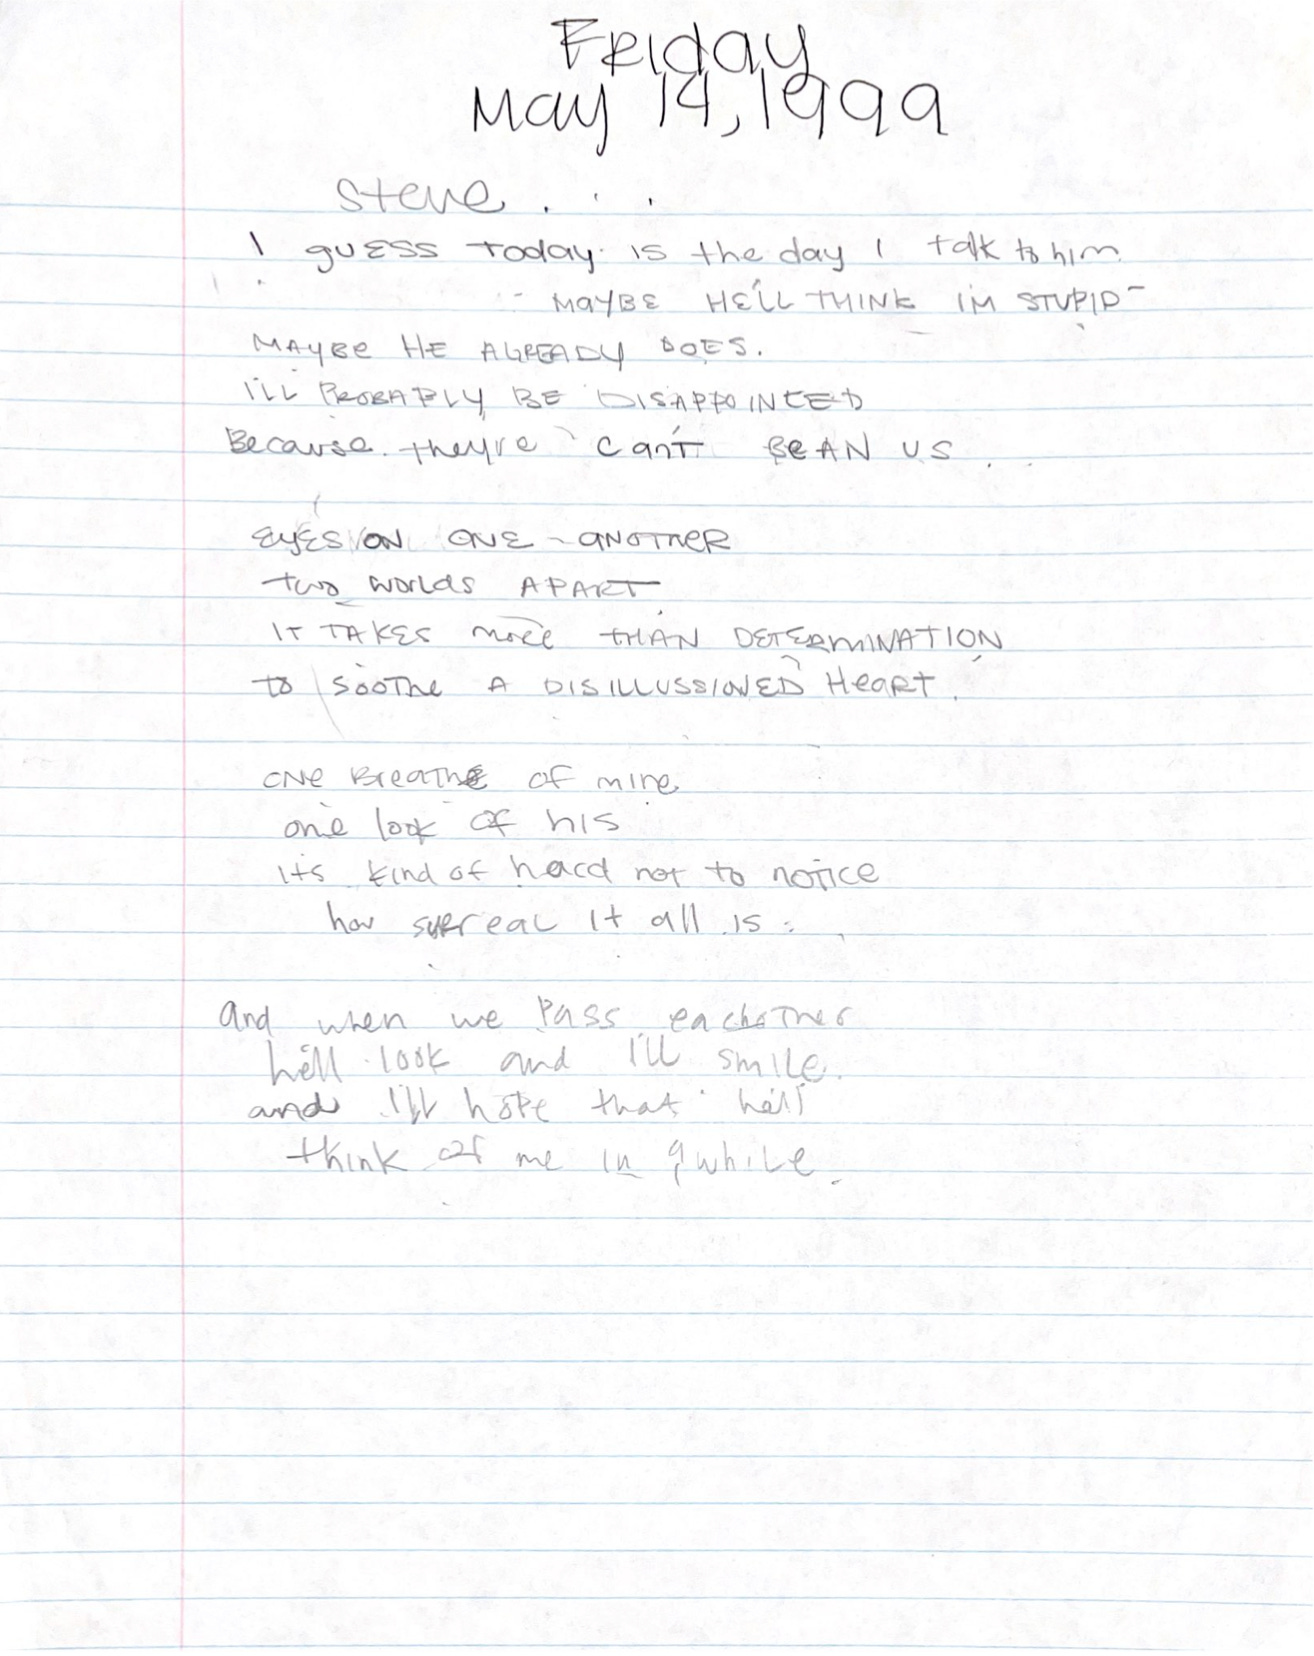 Friday
May 14, 1999
Steve...
I guess today is the day I talk to him.
- MAYBE HE'LL THINK I'M STUPID -
MAYBE HE ALREADY DOES.
I'LL PROBABLY BE DISAPPOINTED
Because they're can't BE AN US.
EYES ON ONE-ANOTHER
two worlds APART
IT TAKES more THAN DETERMINATION
to soothe A DISILLUSSIONED Heart.
one Breathe of mine
one look of his
its kind of hard not to notice
how surreal it all is.
and when we pass eachother
he'll look and I'll smile.
and I'll hope that he'll
think of me in awhile.